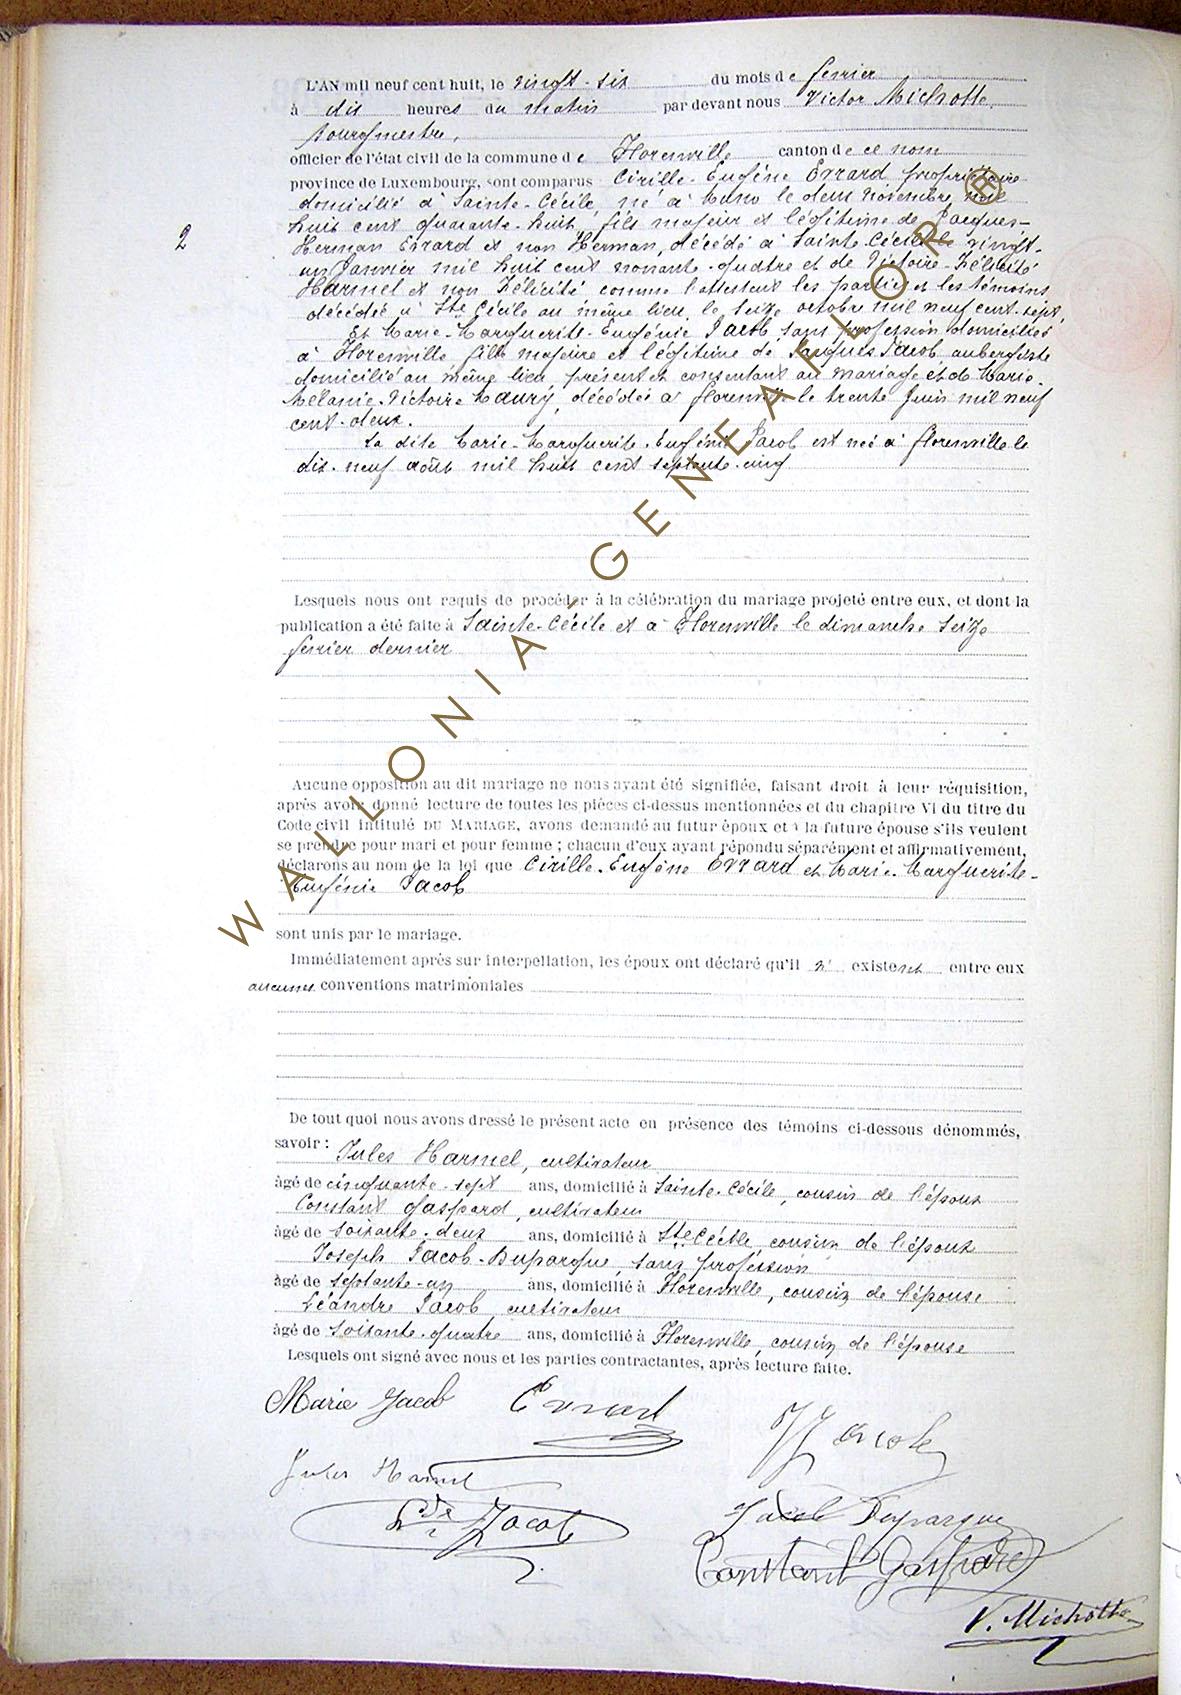 L'AN mil neuf cent huit, le vingt-six du mois de fevrier
à dix heures du matin par devant nous Victor Michotte,
bourgmestre,
officier de l'état civil de la commune de Florenville canton de ce nom
province de Luxembourg, sont comparus Cirille-Eugène Evrard propriétaire
domicilié à Sainte-Cécile, né à Muno le deux novembre mil
huit cent quarante-huit, fils majeur et légitime de Jacques-
Herman Evrard et non Herman, décédé à Sainte-Cécile le vingt-
un Janvier mil huit cent nonante-quatre et de Victoire-Félicité
Harmel et non Félicité comme l'attestent les parties et les témoins
décédée à Ste Cécile au même lieu, le seize octobre mil neuf cent-sept,
Et Marie-Marguerite-Eugénie Jacob, sans profession domiciliée
à Florenville fille majeure et légitime de Jacques Jacob aubergiste
domicilié au même lieu présent et consentant au mariage et de Marie-
Mélanie-Victoire Maury, décédée à florenville le trente juin mil neuf
cent-deux.
La dite Marie-Marguerite-Eugénie Jacob est née à florenville le
dix-neuf août mil huit cent septante-cinq
Lesquels nous ont requis de procéder à la célébration du mariage projeté entre eux, et dont la
publication a été faite à Sainte-Cécile et à Florenville le dimanche seize
fevrier dernier
Aucune opposition au dit mariage ne nous ayant été signifiée, faisant droit à leur réquisition,
après avoir donné lecture de toutes les pièces ci-dessus mentionnées et du chapitre VI du titre du
Code civil intitulé DU MARIAGE, avons demandé au futur époux et à la future épouse s'ils veulent
se prendre pour mari et pour femme ; chacun d'eux ayant répondu séparément et affirmativement,
déclarons au nom de la loi que Cirille-Eugène Evrard et Marie-Marguerite-
Eugénie Jacob
sont unis par le mariage.
Immédiatement après sur interpellation, les époux ont déclaré qu'il n' existent entre eux
aucunes conventions matrimoniales
De tout quoi nous avons dressé le présent acte en présence des témoins ci-dessous dénommés,
savoir : Jules Harmel, cultivateur
âgé de cinquante-sept ans, domicilié à Sainte-Cécile, cousin de l'époux
Constant Gaspard, cultivateur
âgé de soixante-deux ans, domicilié à Ste Cécile, cousin de l'époux
Joseph Jacob-Duparque, sans profession
âgé de septante-un ans, domicilié à Florenville, cousin de l'épouse
Léandre Jacob, cultivateur
âgé de soixante-quatre ans, domicilié à Florenville, cousin de l'épouse
Lesquels ont signé avec nous et les parties contractantes, après lecture faite.
Marie Jacob Evrard
J Jacob
Jules Harmel
Ldre Jacob
Jacob Duparque
Constant Gaspard
V. Michotte
2
WALLONIA-GENEAFLOR ®